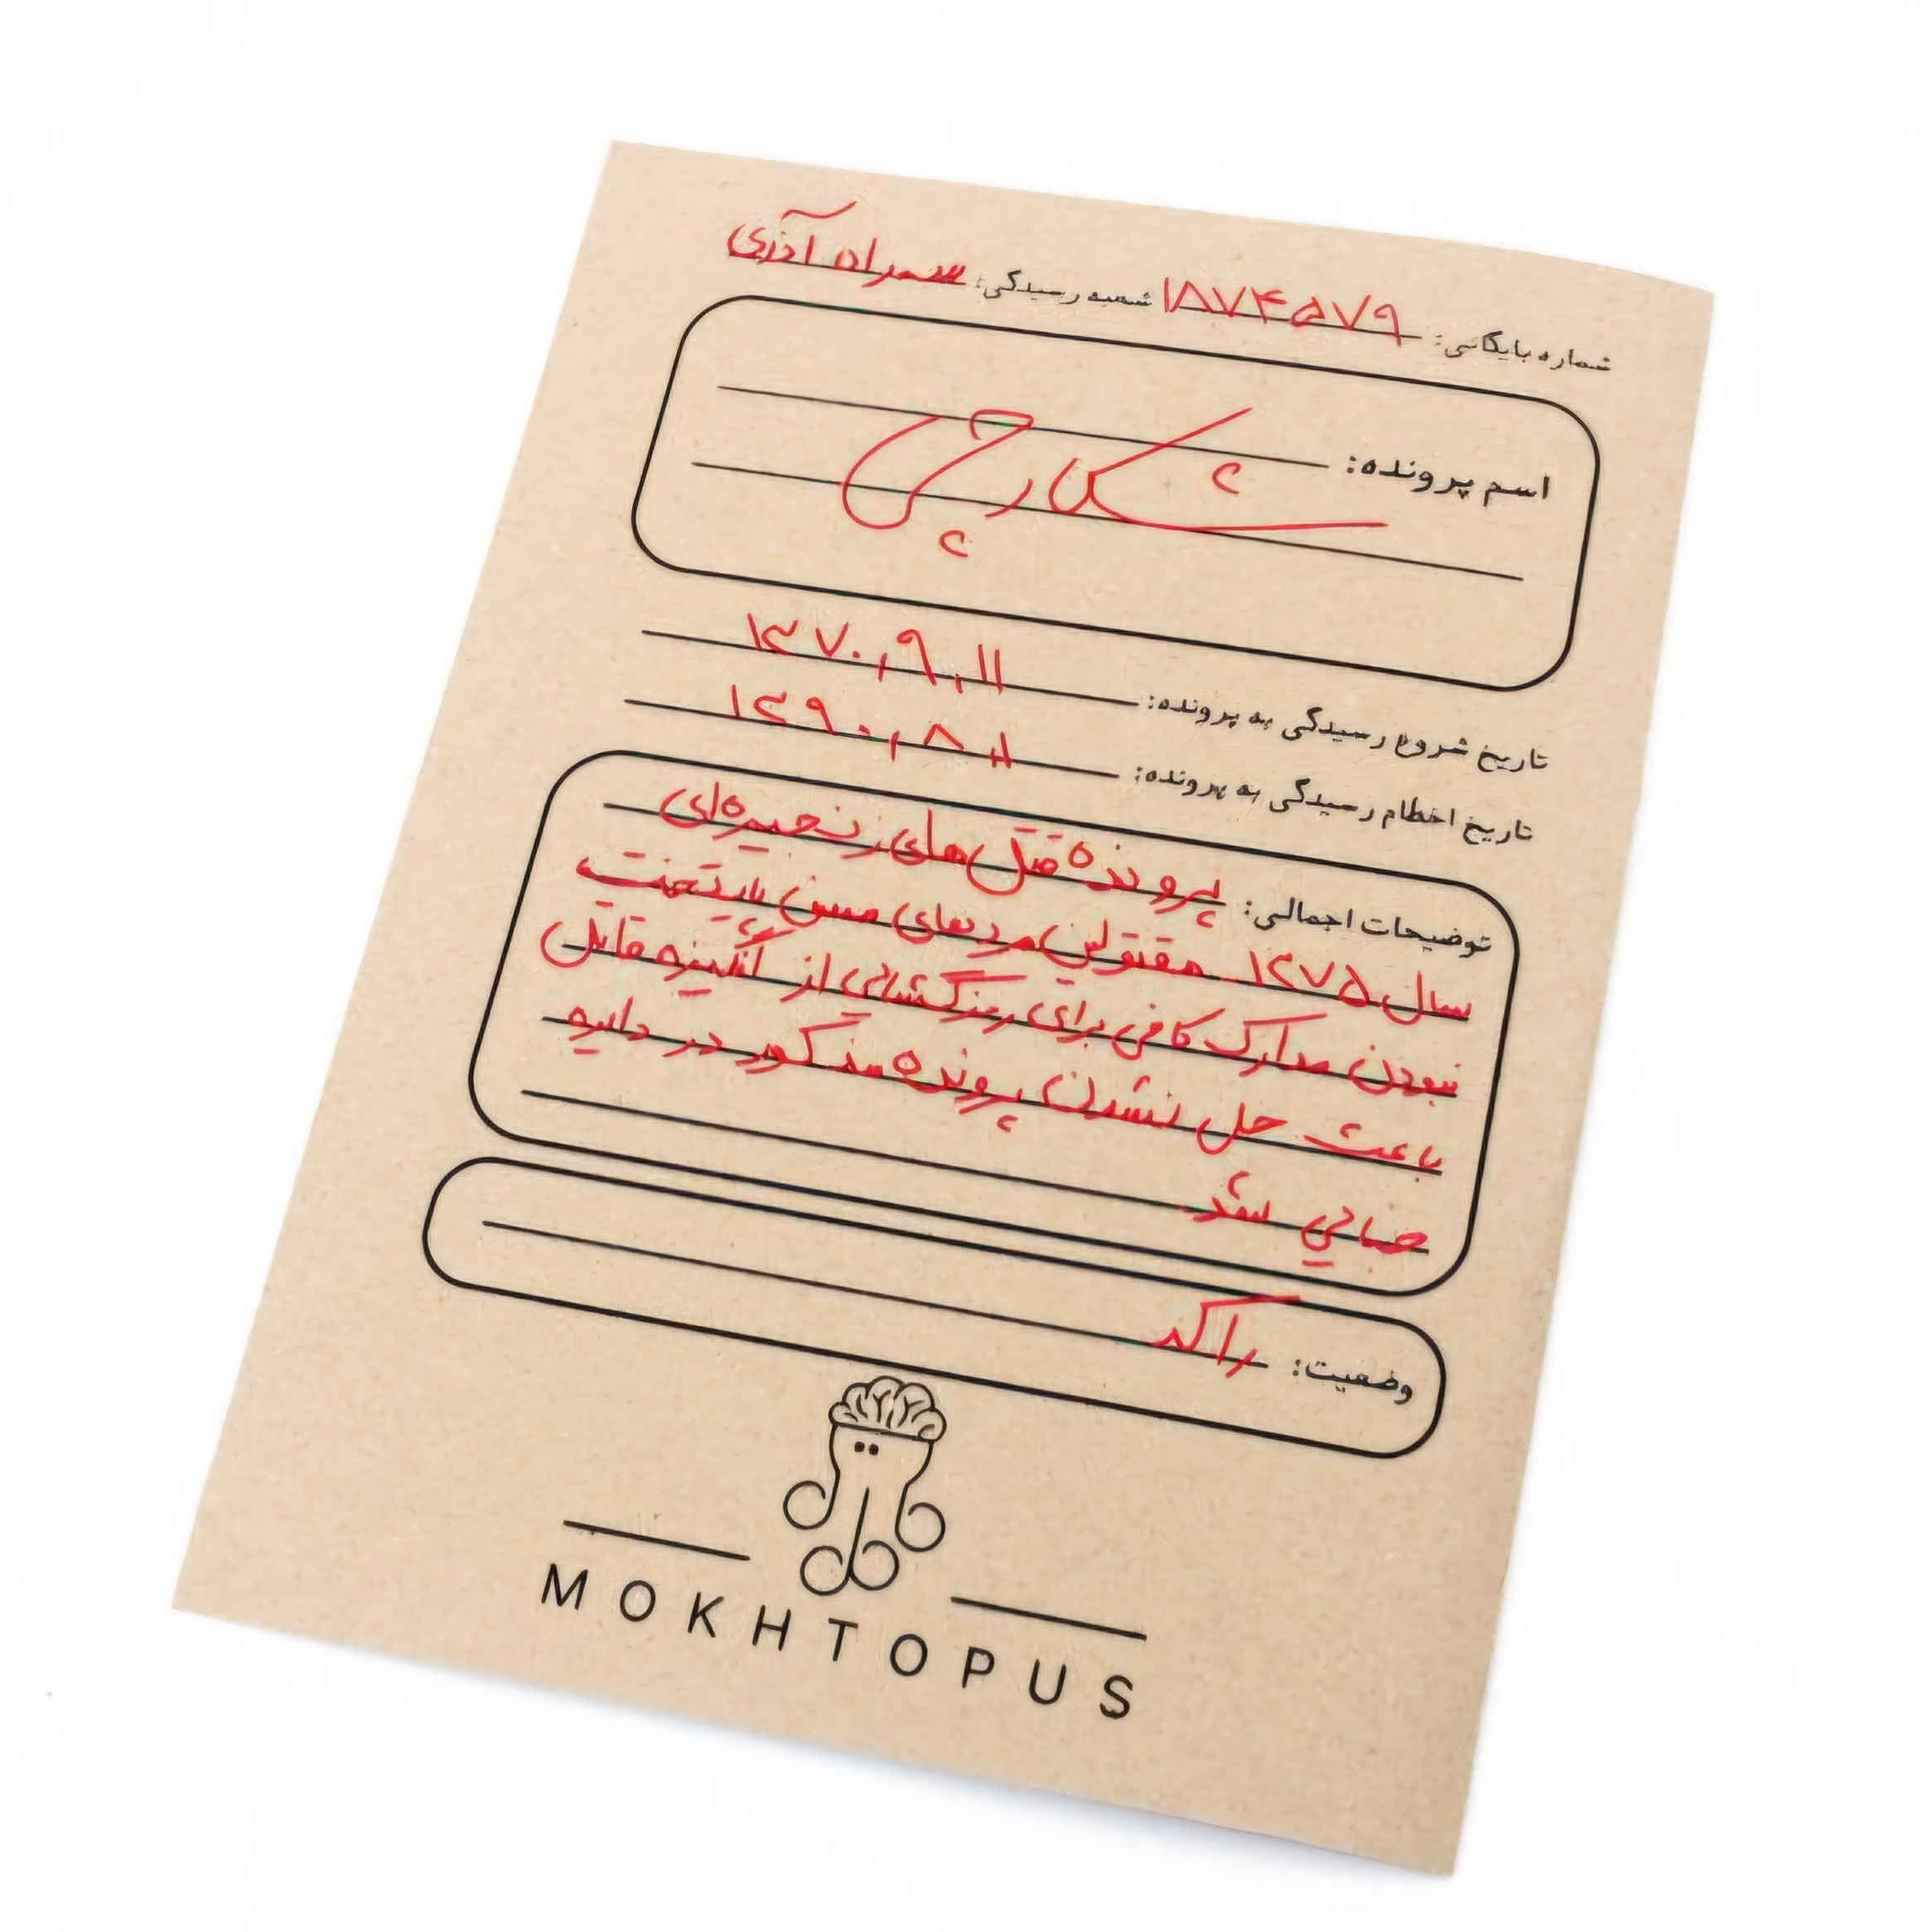 شماره بایگانی: ۱۸۷۴۵۷۹ شعبه رسیدگی: سهراه آذری
اسم پرونده: شکارچی
تاریخ شروع رسیدگی به پرونده: ۱۳۷۰,۹,۱۱
تاریخ اختام رسیدگی به پرونده: ۱۳۹۰,۸,۱
توضیحات اجمالی: پرونده قتل های زنجیره‌ای
سال ۱۳۷۵ مقتولین مردهای مسن پایتخت
نبودن مدارک کافی برای رمزگشایی از انگیزه قاتل
باعث حل نشدن پرونده مذکور در دایره
جنائی شد
وضعیت: راکد
MOKHTOPUS